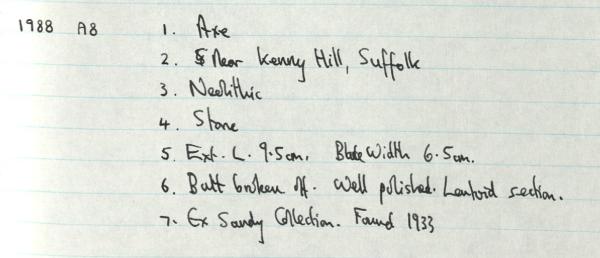 1988 A8 1. Axe
2. Near Kenny Hill, Suffolk
3. Neolithic
4. Stone
5. Ext. L. 9.5cm. Blade Width 6.5cm.
6. Butt broken off. Well polished. Lentoid section.
7. Ex Sandy Collection. Found 1933